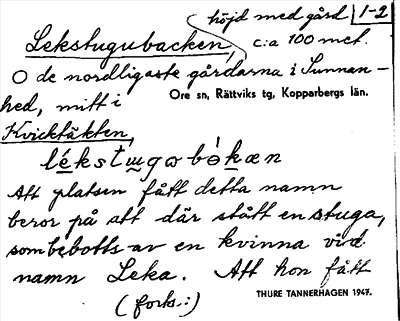 höjd med gård 1-2
Lekstugubacken, c:a 100 met.
O de nordligaste gårdarna i Sunnan-
hed, mitt i Ore sn, Rättviks tg, Kopparbergs län.
Kvicktäkten,
Att platsen fått detta namn
beror på att där stått en stuga,
som bebotts av en kvinna vid
namn Leka. Att hon fått
(forts.:) THURE TANNERHAGEN 1947.